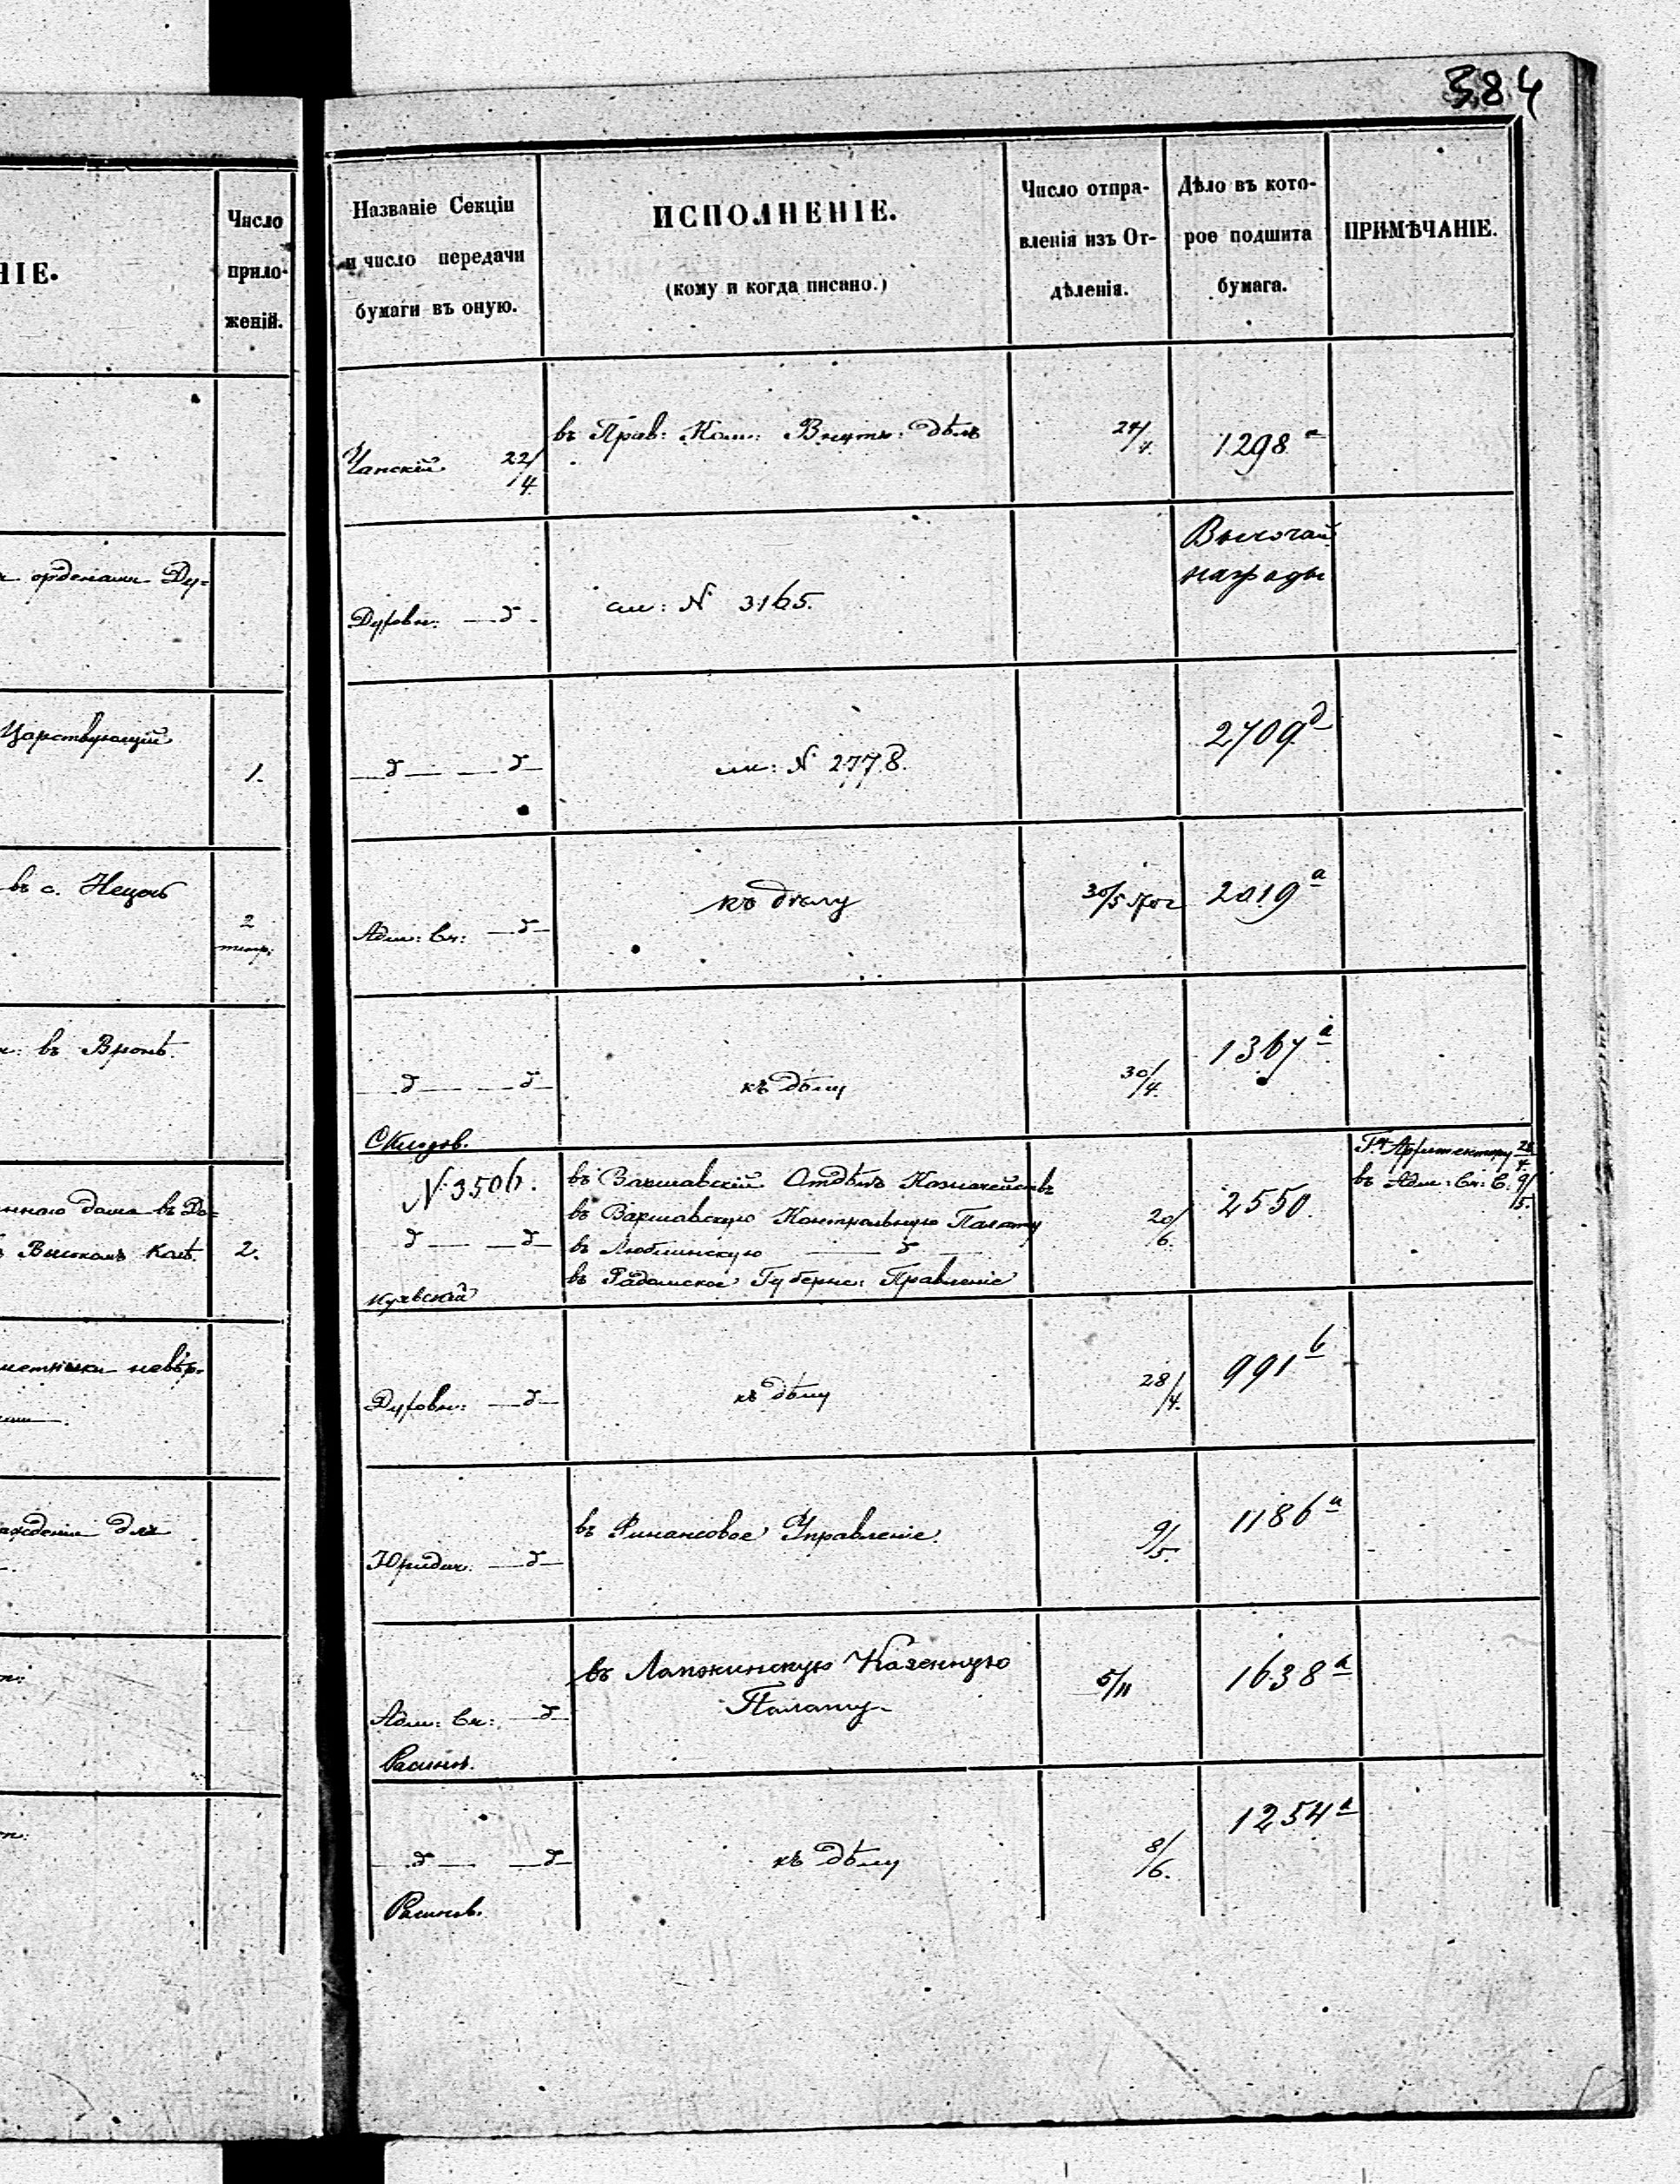 384
НІЕ.
Число
прило-
женій.
орденами Ду-
Царствующій
1.
въ с. Нецочь
2
въ Вронѣ.
ннаго дома въ До-
Высокомъ Колѣ.
2.
невѣр.
для
Названіе Секціи
и число передачи
бумаги въ оную.
ИСПОЛНЕНІЕ.
(кому и когда писано.)
Число отпра-
вленія изъ От-
дѣленія.
Дѣло въ кото-
рое подшита
бумага.
ПРИМѢЧАНІЕ.
Чапскій 22/4
въ Прав: Ком: Внутр: Дѣлъ
24/4.
1298 а
Духовн: —д—
см: № 3165.
Высочай.
награды
—д— —д—
см: № 2778.
2709 д
Адм: Сч: —д—
къ дѣлу
30/5
2019 а
—д— —д—
къ дѣлу
30/4.
1367 а
№ 3506.
—д— —д—
въ Варшавскій Отдѣлъ Казначействъ
въ Варшавскую Контрольную Палату
въ Люблинскую —д—
въ Радомское Губернс: Правленіе
20/6.
2550.
Г. Архитектору 28/4.
въ Адм: Сч: С. 9/5.
Духовн: —д—
къ дѣлу
28/4.
991 b
Юридич. —д—
въ Финансовое Управленіе.
9/5.
1186 а
Адм: Сч: —д—
въ Ломжинскую Казенную
Палату
5/11
1638 а
—д— —д—
къ дѣлу
8/6.
1254 а